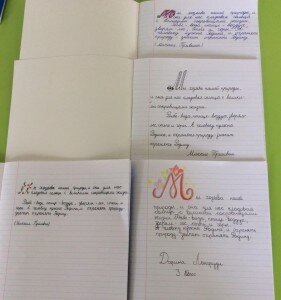 Мы хозяева нашей природы, и
она для нас кладовая солнца
с великими сокровищами жизни.
Рыбе - вода, птице - воздух,
зверям - лес, степь, горы. А
человеку нужна Родина. И охранять
природу - значит охранять Родину.
(Михаил Пришвин)
Мы хозяева нашей природы,
и она для нас кладовая солнца с велики-
ми сокровищами жизни.
Рыбе - вода, птице - воздух, зверям -
лес, степи и горы. А человеку нужна
Родина, и охранять природу значит
охранять Родину.
Михаил Пришвин
Мы хозяева нашей природы, и она для нас
кладовая солнца с великими сокровищами жизни.
Рыбе - вода, птице - воздух, зверям - лес, степи и
горы. А человеку нужна Родина. И охранять природу -
значит охранять Родину.
(Михаил Пришвин)
Мы хозяева нашей
природы, и она для нас кладовая
солнца с великими сокровищами
жизни. Рыбе - вода, птице - воздух,
зверям - лес, степи, горы.
А человеку нужна Родина. И охранять
природу - значит охранять Родину.
3 класс